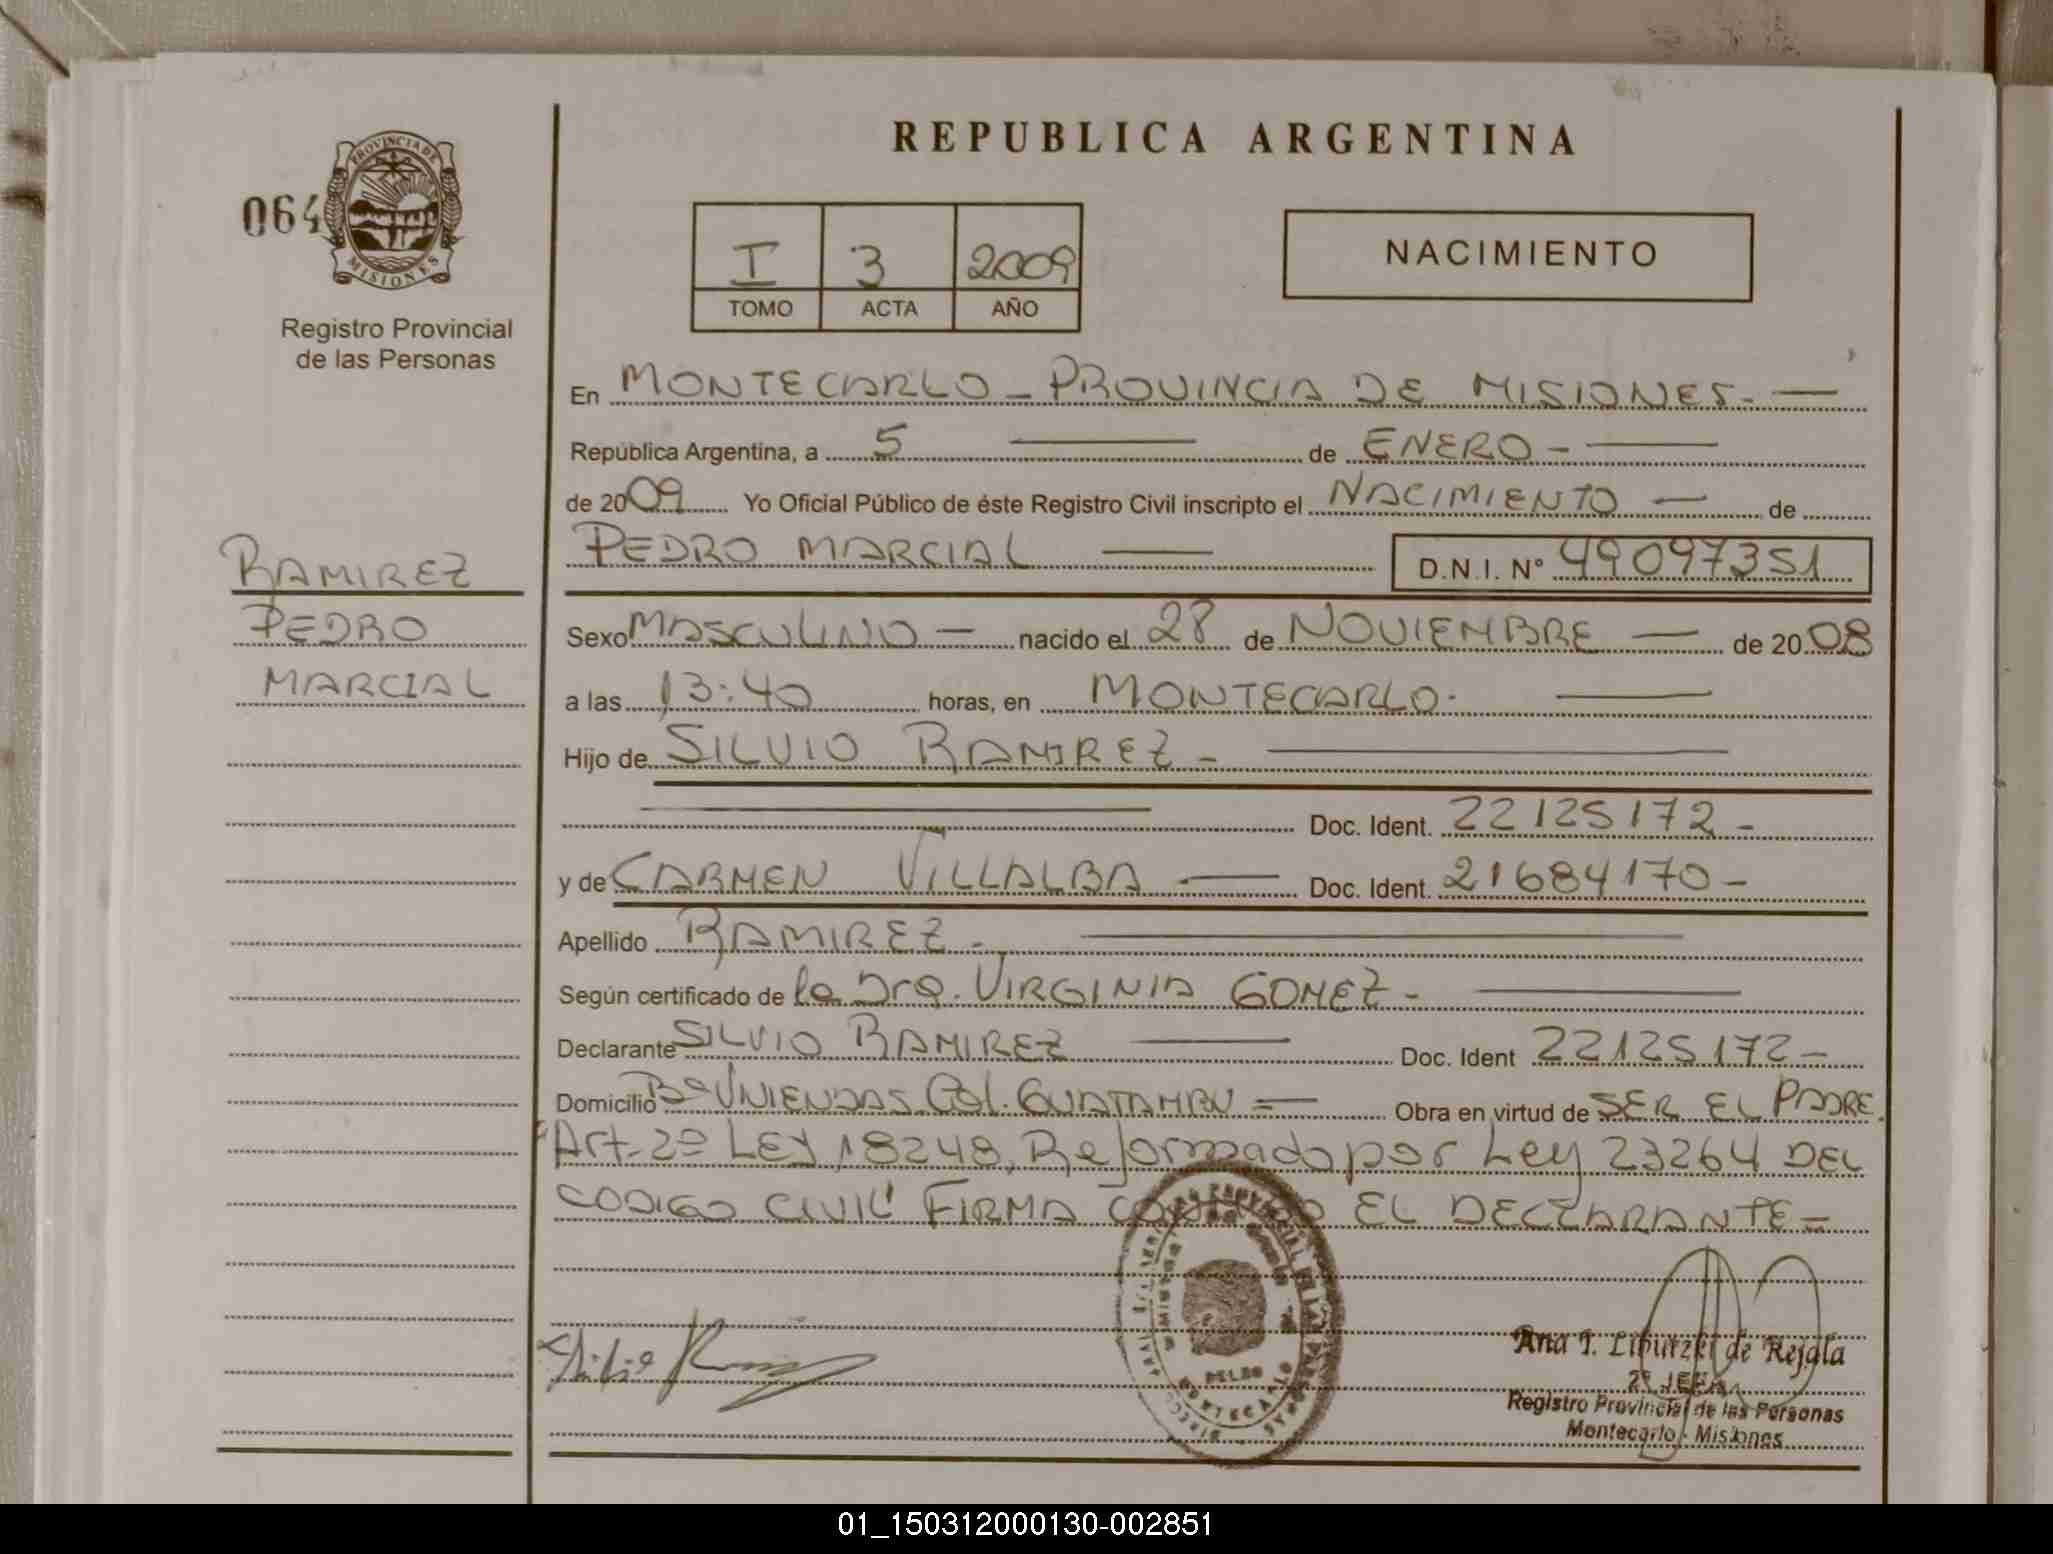 REPUBLICA ARGENTINA
064
PROVINCIA DE
MISIONES
Registro Provincial
de las Personas
I 3 2009
TOMO ACTA AÑO
NACIMIENTO
En MONTECARLO - PROVINCIA DE MISIONES. —
República Argentina, a 5 — de ENERO - —
de 2009 Yo Oficial Público de éste Registro Civil inscripto el NACIMIENTO — de
PEDRO MARCIAL — D.N.I. N° 49097351
RAMIREZ
PEDRO
MARCIAL
Sexo MASCULINO — nacido el 28 de NOVIEMBRE — de 2008
a las 13:40 horas, en MONTECARLO. —
Hijo de SILVIO RAMIREZ - —
— Doc. Ident. 22125172 -
y de CARMEN VILLALBA — Doc. Ident. 21684170 -
Apellido RAMIREZ - —
Según certificado de la Dra. VIRGINIA GOMEZ - —
Declarante SILVIO RAMIREZ — Doc. Ident 22125172 -
Domicilio Bº VIVIENDAS Col. GUATAMBU = — Obra en virtud de SER EL PADRE.
"Art. 2º LEY 18248, Reformado por Ley 23264 DEL
CODIGO CIVIL" FIRMA CONMIGO EL DECLARANTE -
Silvio
MONTECARLO
Ana I. de Rejala
2º JEFE
Registro Provincial de las Personas
Montecarlo - Misiones
01_150312000130-002851